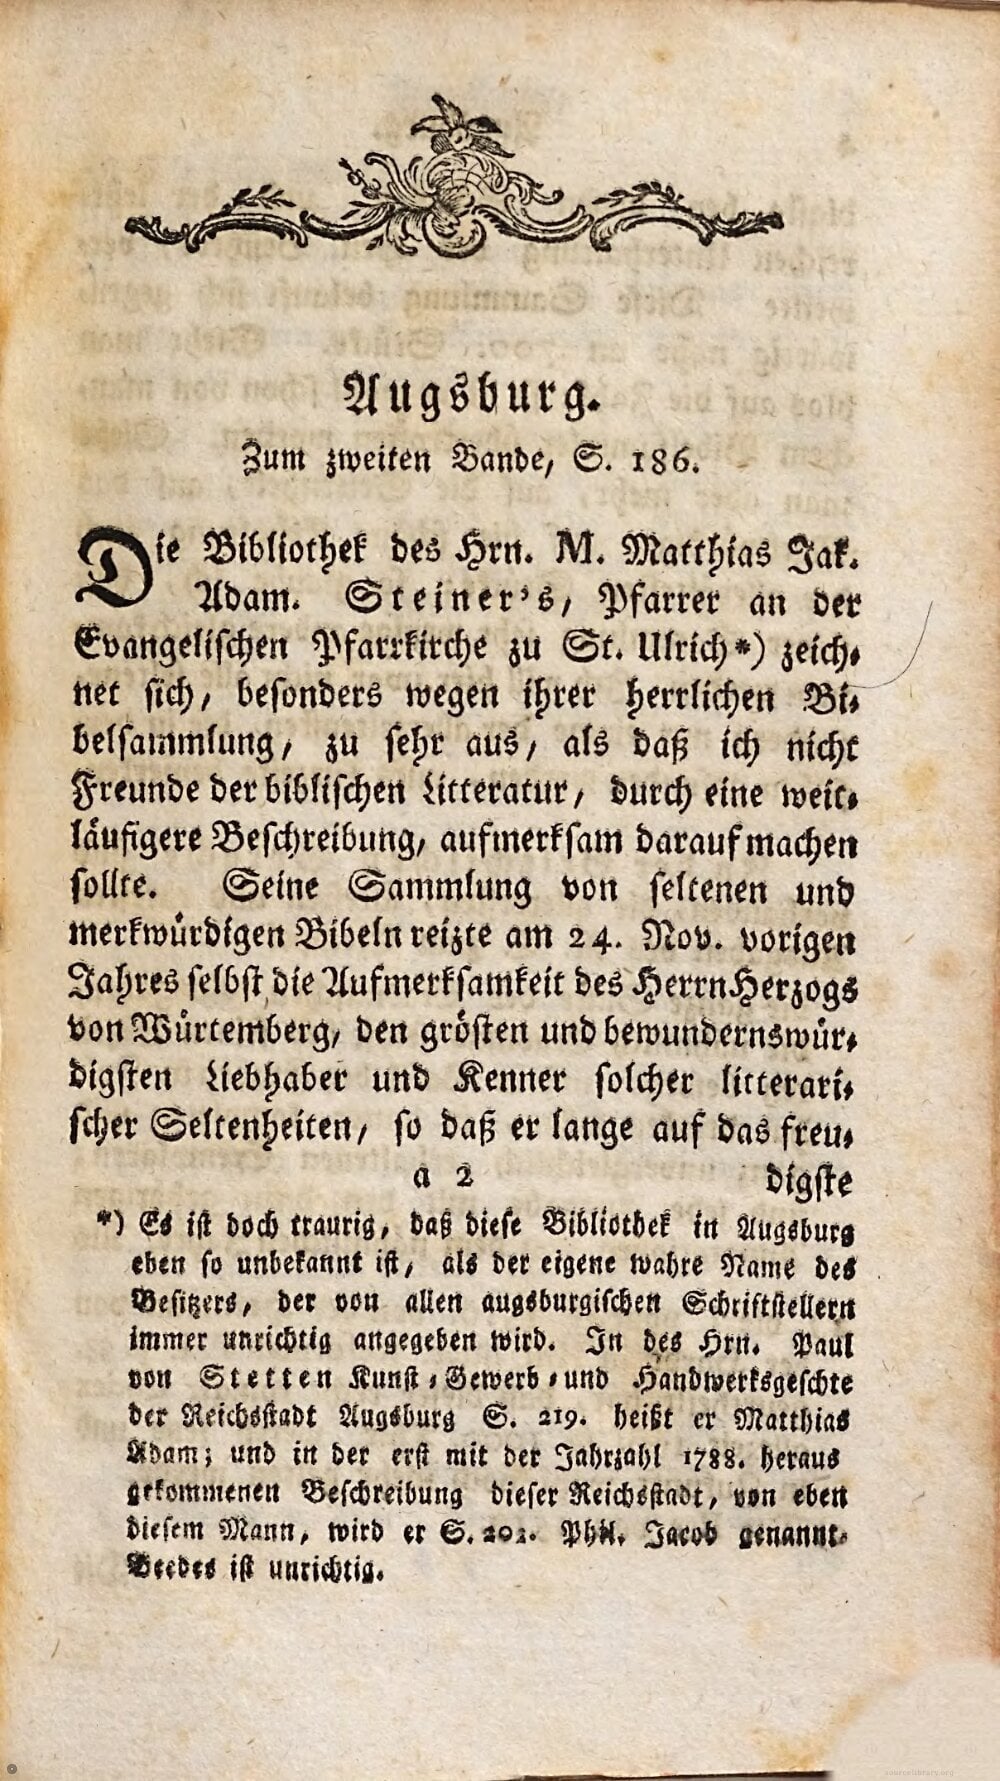 Augsburg.
Zum zweiten Bande, S. 186.
Die Bibliothek des Hrn. M. Matthias Jak.
Adam. Steiner's, Pfarrer an der
Evangelischen Pfarrkirche zu St. Ulrich*) zeich-
net sich, besonders wegen ihrer herrlichen Bi-
belsammlung, zu sehr aus, als daß ich nicht
Freunde der biblischen Litteratur, durch eine weit-
läufigere Beschreibung, aufmerksam darauf machen
sollte. Seine Sammlung von seltenen und
merkwürdigen Bibeln reizte am 24. Nov. vorigen
Jahres selbst die Aufmerksamkeit des Herrn Herzogs
von Würtemberg, den grösten und bewundernswür-
digsten Liebhaber und Kenner solcher litterari-
scher Seltenheiten, so daß er lange auf das freu-
a 2 digste
*) Es ist doch traurig, daß diese Bibliothek in Augsburg
eben so unbekannt ist, als der eigene wahre Name des
Besitzers, der von allen augsburgischen Schriftstellern
immer unrichtig angegeben wird. In des Hrn. Paul
von Stetten Kunst-Gewerb-und Handwerksgeschte
der Reichsstadt Augsburg S. 219. heißt er Matthias
Adam; und in der erst mit der Jahrzahl 1788. heraus
gekommenen Beschreibung dieser Reichsstadt, von eben
diesem Mann, wird er S. 202. Phil. Jacob genannt.
Beedes ist unrichtig.
sourcelibrary.org